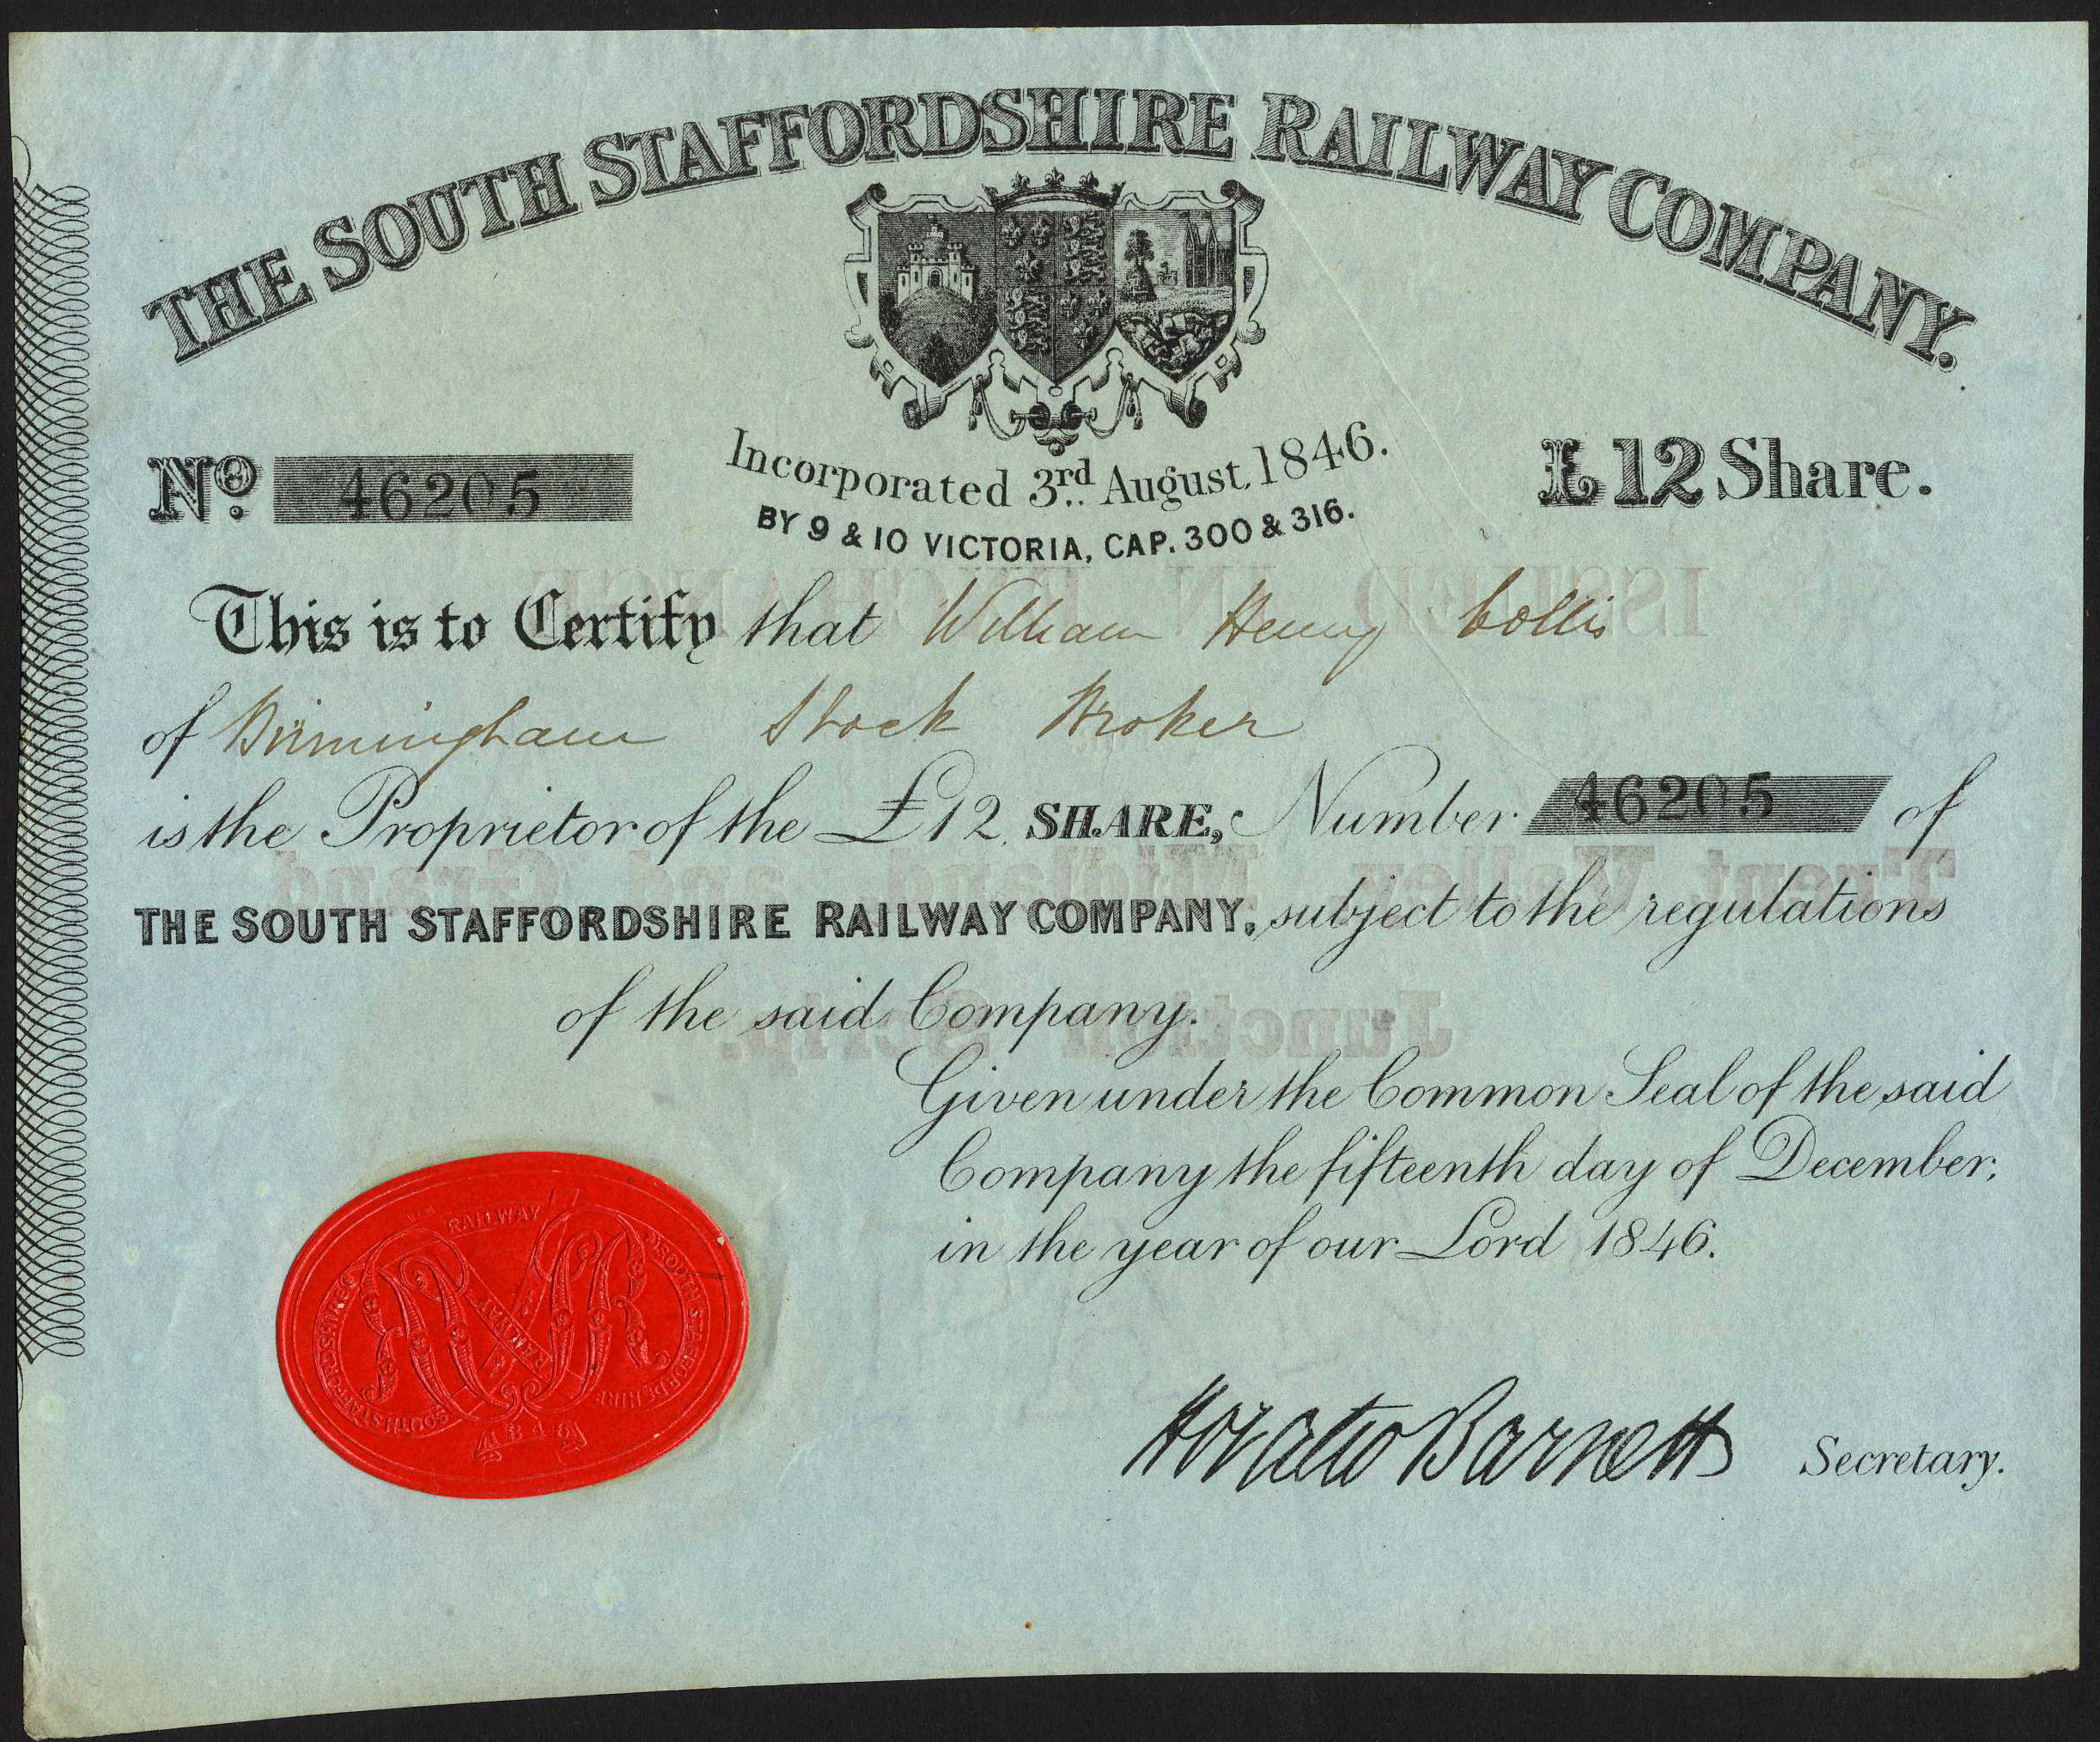 THE SOUTH STAFFORDSHIRE RAILWAY COMPANY.
Incorporated 3rd August 1846.
BY 9 & 10 VICTORIA, CAP. 300 & 316.
No. 46205
£12 Share.
This is to Certify that William Henry Collis
of Birmingham Stock Broker
is the Proprietor of the £12 SHARE, Number 46205 of
THE SOUTH STAFFORDSHIRE RAILWAY COMPANY, subject to the regulations
of the said Company.
Given under the Common Seal of the said
Company the fifteenth day of December,
in the year of our Lord 1846.
Horatio Barnett Secretary.
RAILWAY
SOUTH STAFFORDSHIRE
SOUTH STAFFORDSHIRE
RAILWAY
ISSUED IN EXCHANGE
Trent Valley Midland and Grand
Junction Scrip.